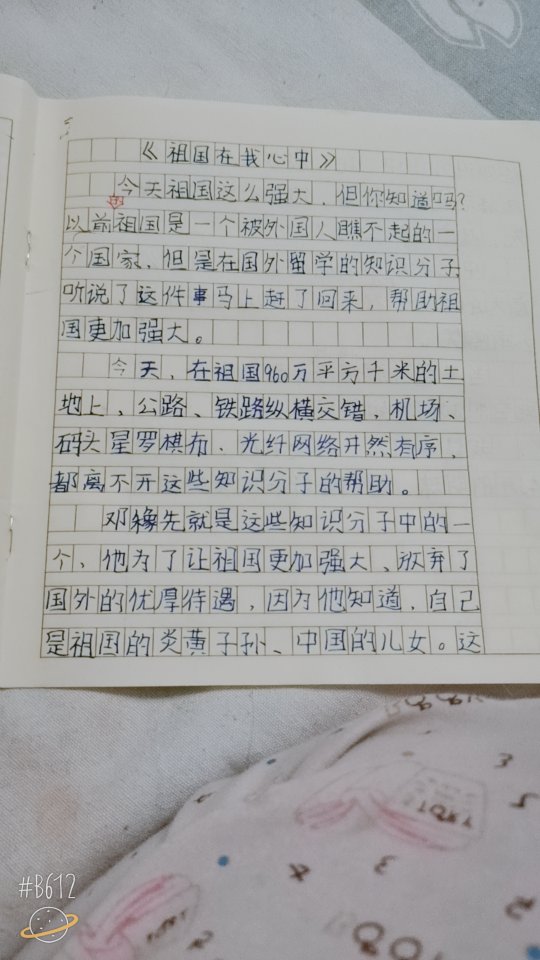 《祖国在我心中》
今天祖国这么强大，但你知道吗？
的
以前祖国是一个被外国人瞧不起的一
个国家，但是在国外留学的知识分子
听说了这件事马上赶了回来，帮助祖
国更加强大。
今天，在祖国960万平方千米的土
地上，公路、铁路纵横交错，机场、
码头星罗棋布、光纤网络井然有序，
都离不开这些知识分子的帮助。
邓稼先就是这些知识分子中的一
个，他为了让祖国更加强大、放弃了
国外的优厚待遇，因为他知道，自己
是祖国的炎黄子孙、中国的儿女。这
#B612